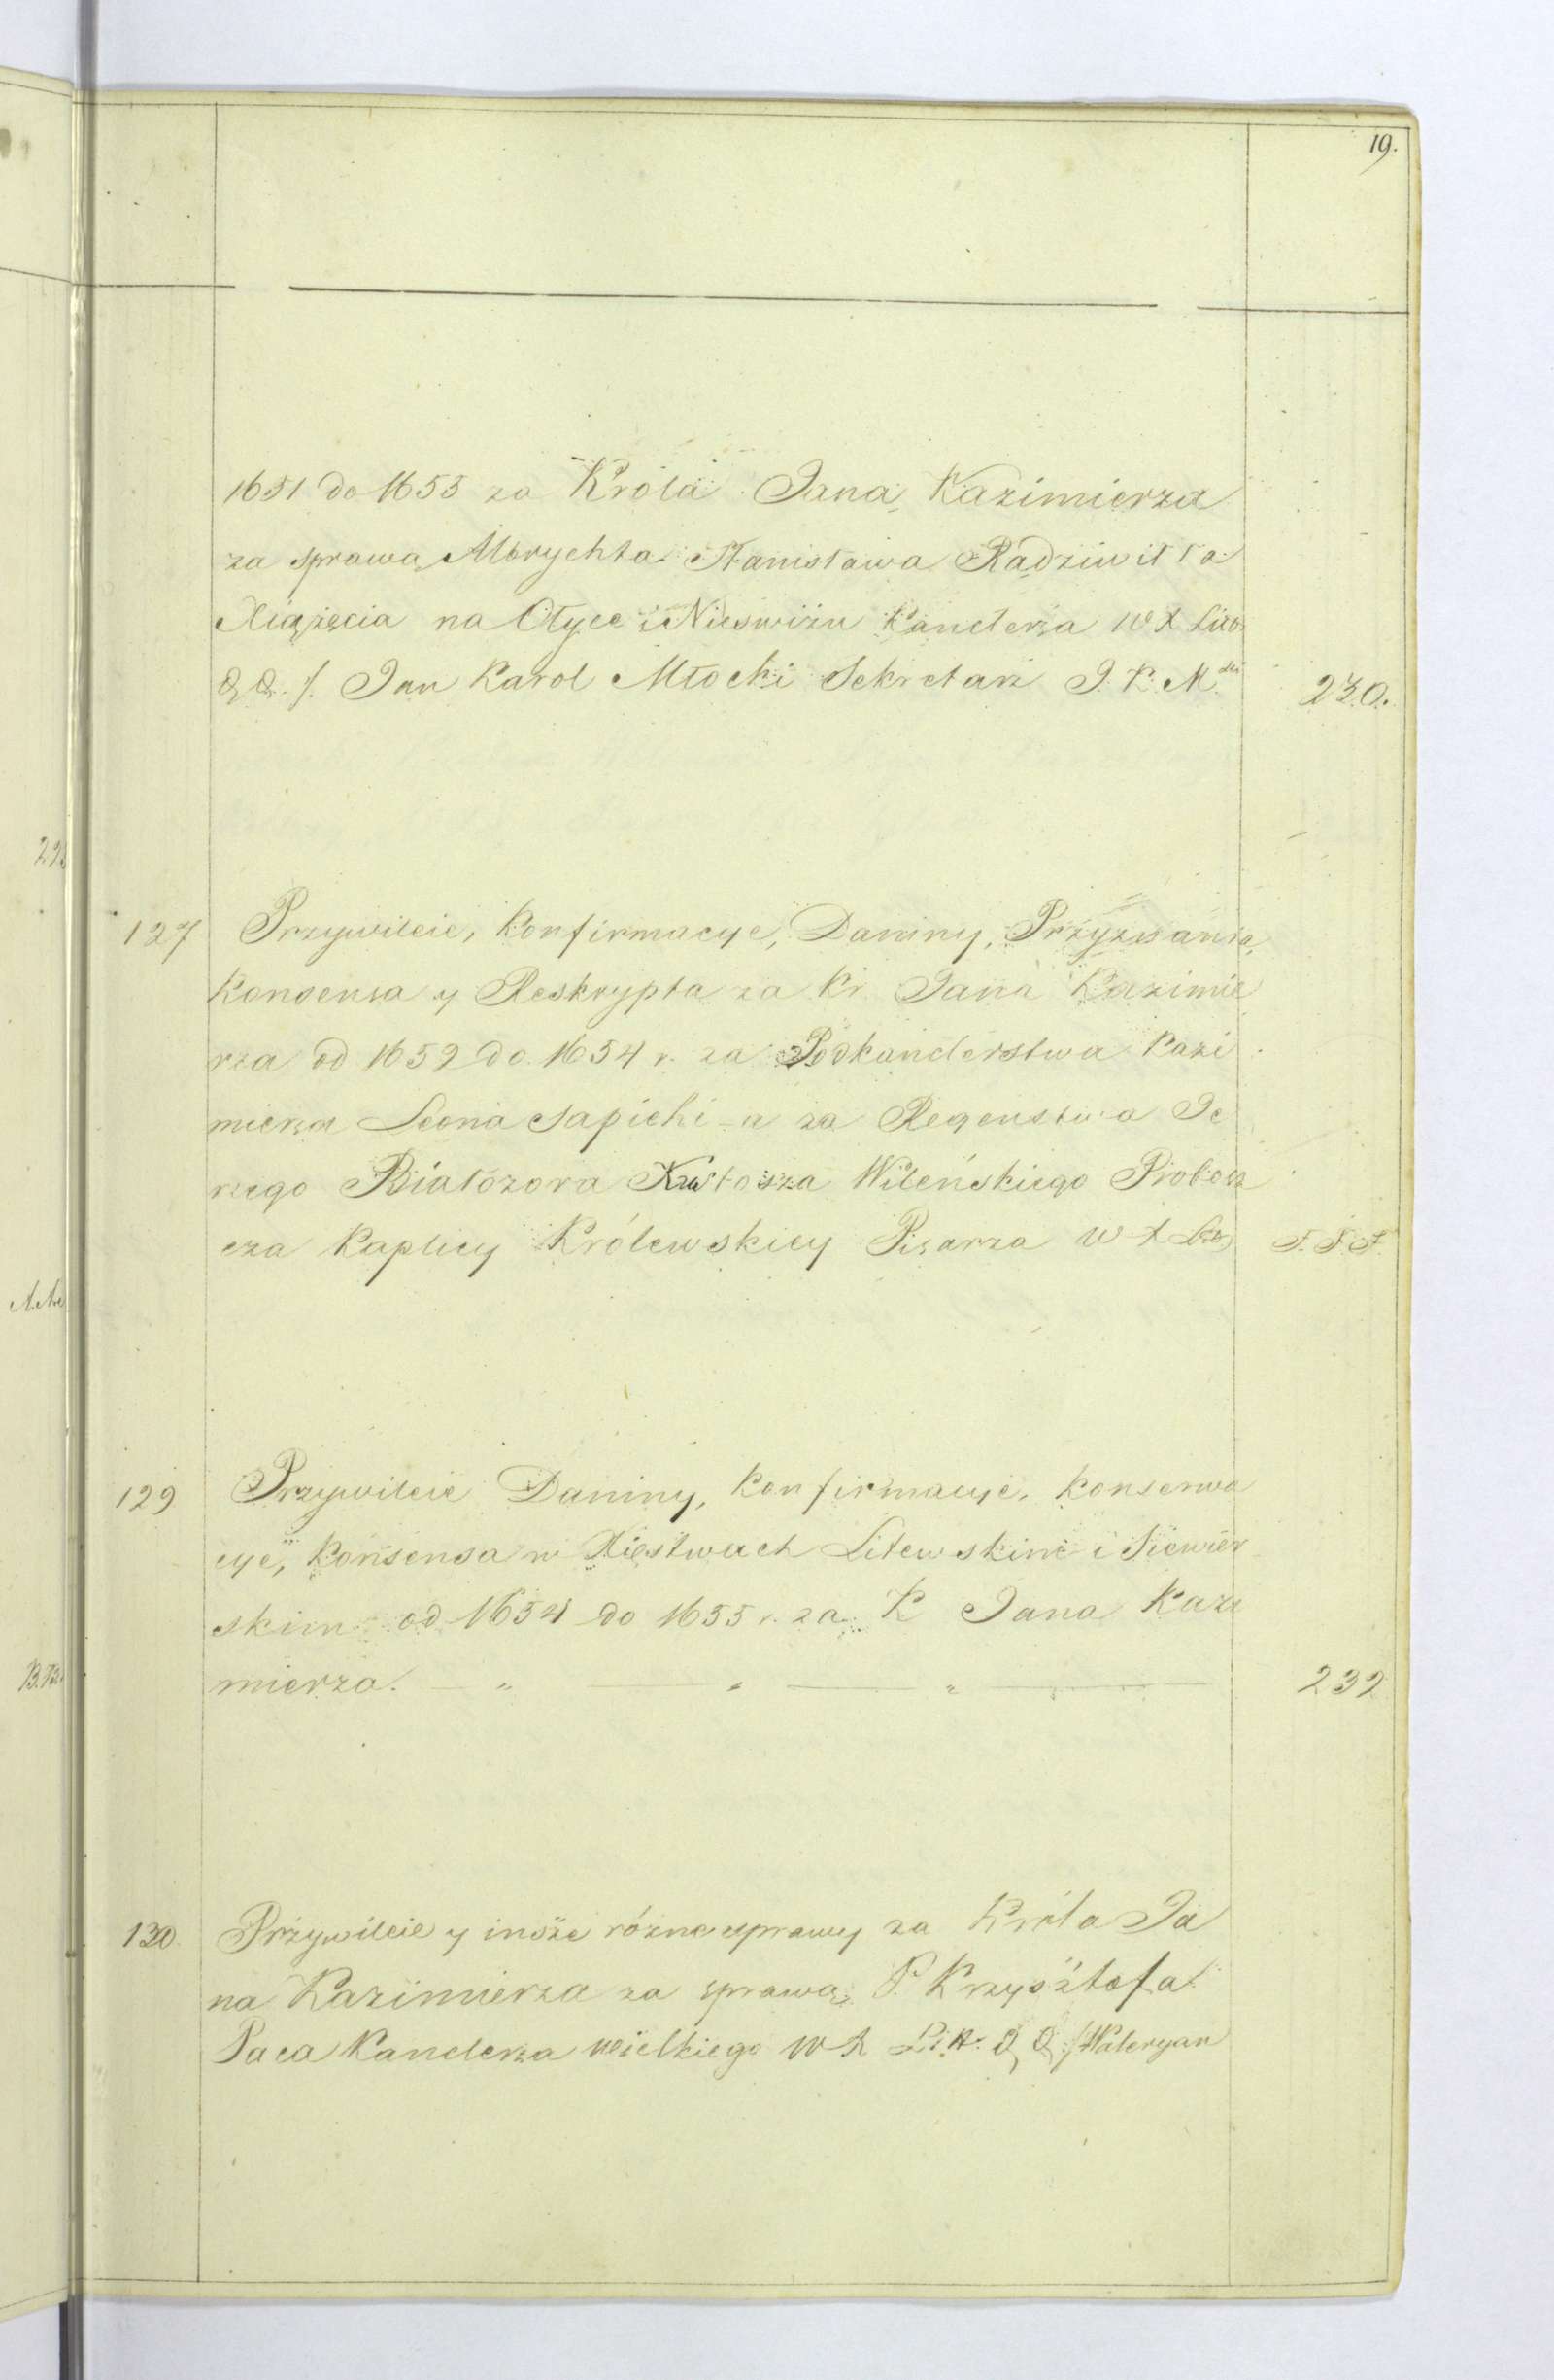 19.
1651 do 1653 za Króla Jana Kazimierza
za sprawą Albrychta Stanisława Radziwiłła
Xiążęcia na Ołyce i Nieswiżu Kanclerza W X Litto.
Q Q. /. Jan Karol Młocki Sekretarz J. K. M.
230.
127 Przywileie, Konfirmacye, Daniny, Przyznania,
Konsensa y Reskrypta za Kr. Jana Kazimie
rza od 1652 do 1654 r. za Podkanclerstwa Kazi
mierza Leona Sapiehi - a za Regenstwa Je
rzego Białozora Kustosza Wileńskiego Probosz
cza Kaplicy Królewskiey Pisarza W X Lit
F. F. F.
129 Przywileie Daniny, Konfirmacye, Konserwa
cye, Konsensa w Xięstwach Litewskim i Siewier
skim od 1654 do 1655 r. za K Jana Kazi
mierza. — " — " — " —
232
130. Przywileie y insze rózne sprawy za Króla Ja
na Kazimierza za sprawą P. Krzysztofa
Paca Kanclerza wielkiego W X Litt. Q Q. /. Waleryan
22.
A.A.
B.B.